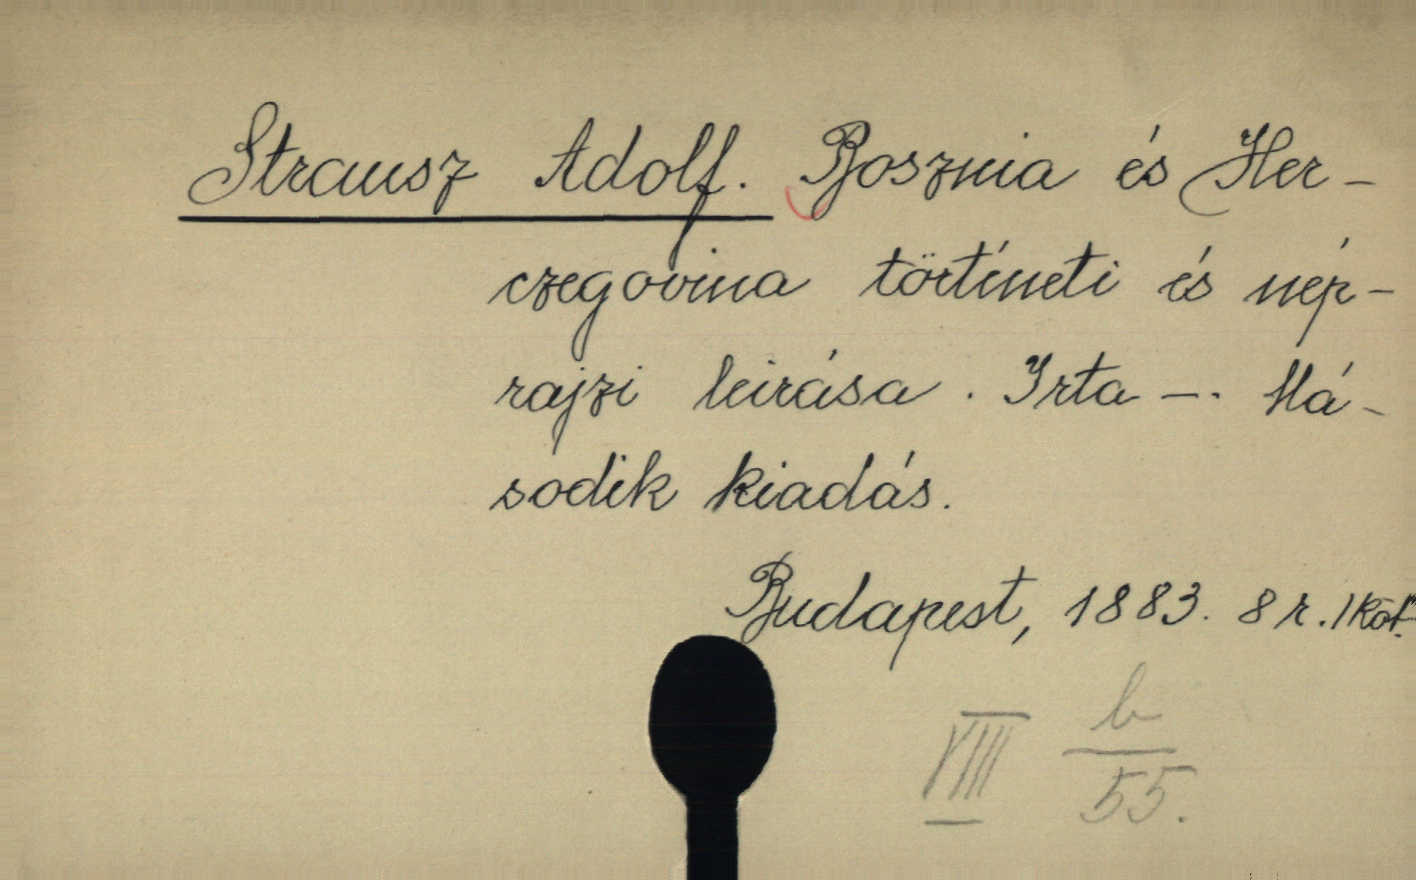 Strausz Adolf. Bosznia és Her-
czegovina történeti és nép-
rajzi leirása. Irta —. Má-
sodik kiadás.
Budapest, 1883. 8 r. 1 köt.
VIII b/55.